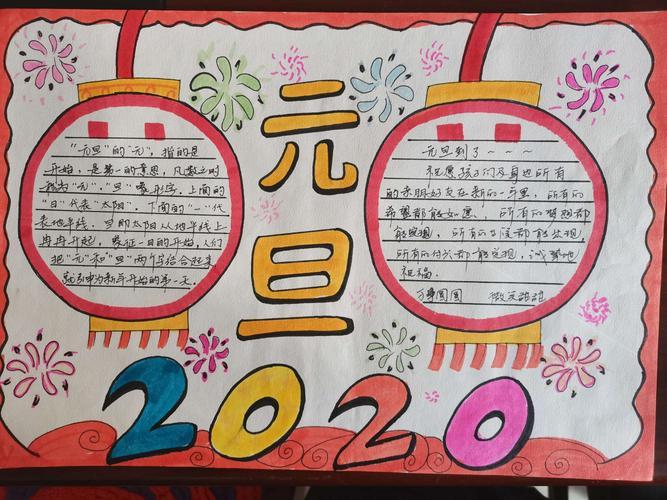 元旦
"元旦"的"元",指的是
开始,是第一的意思,凡数之则
称为"元"。"旦"象形字,上面的
"日"代表"太阳",下面的"一"代
表地平线。当时太阳从地平线上
冉冉升起,象征一日的开始。人们
把"元"和"旦"两个字结合起来
就引申为新年开始的第一天。
元旦到了~~~
祝愿孩子们及身边所有
的亲朋好友在新的一年里,所有的
希望都能如愿、所有的梦想都
能实现,所有的 都能出现,
所有的付出都能兑现,诚挚地
祝福。
团圆 微笑甜甜
2020